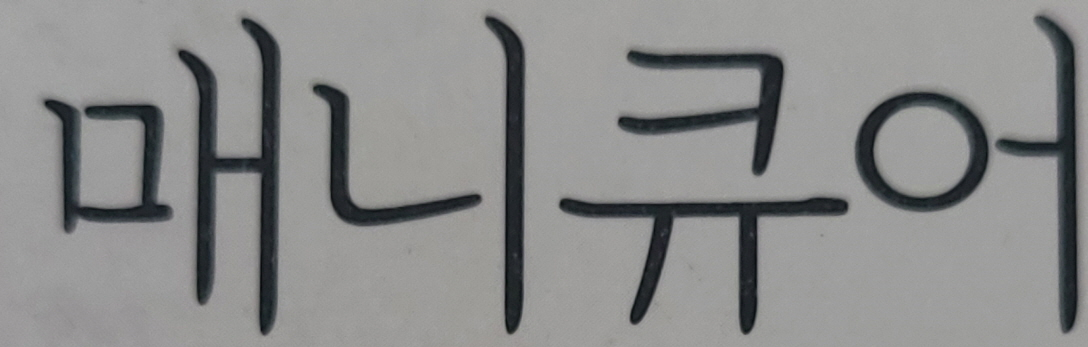 매니큐어